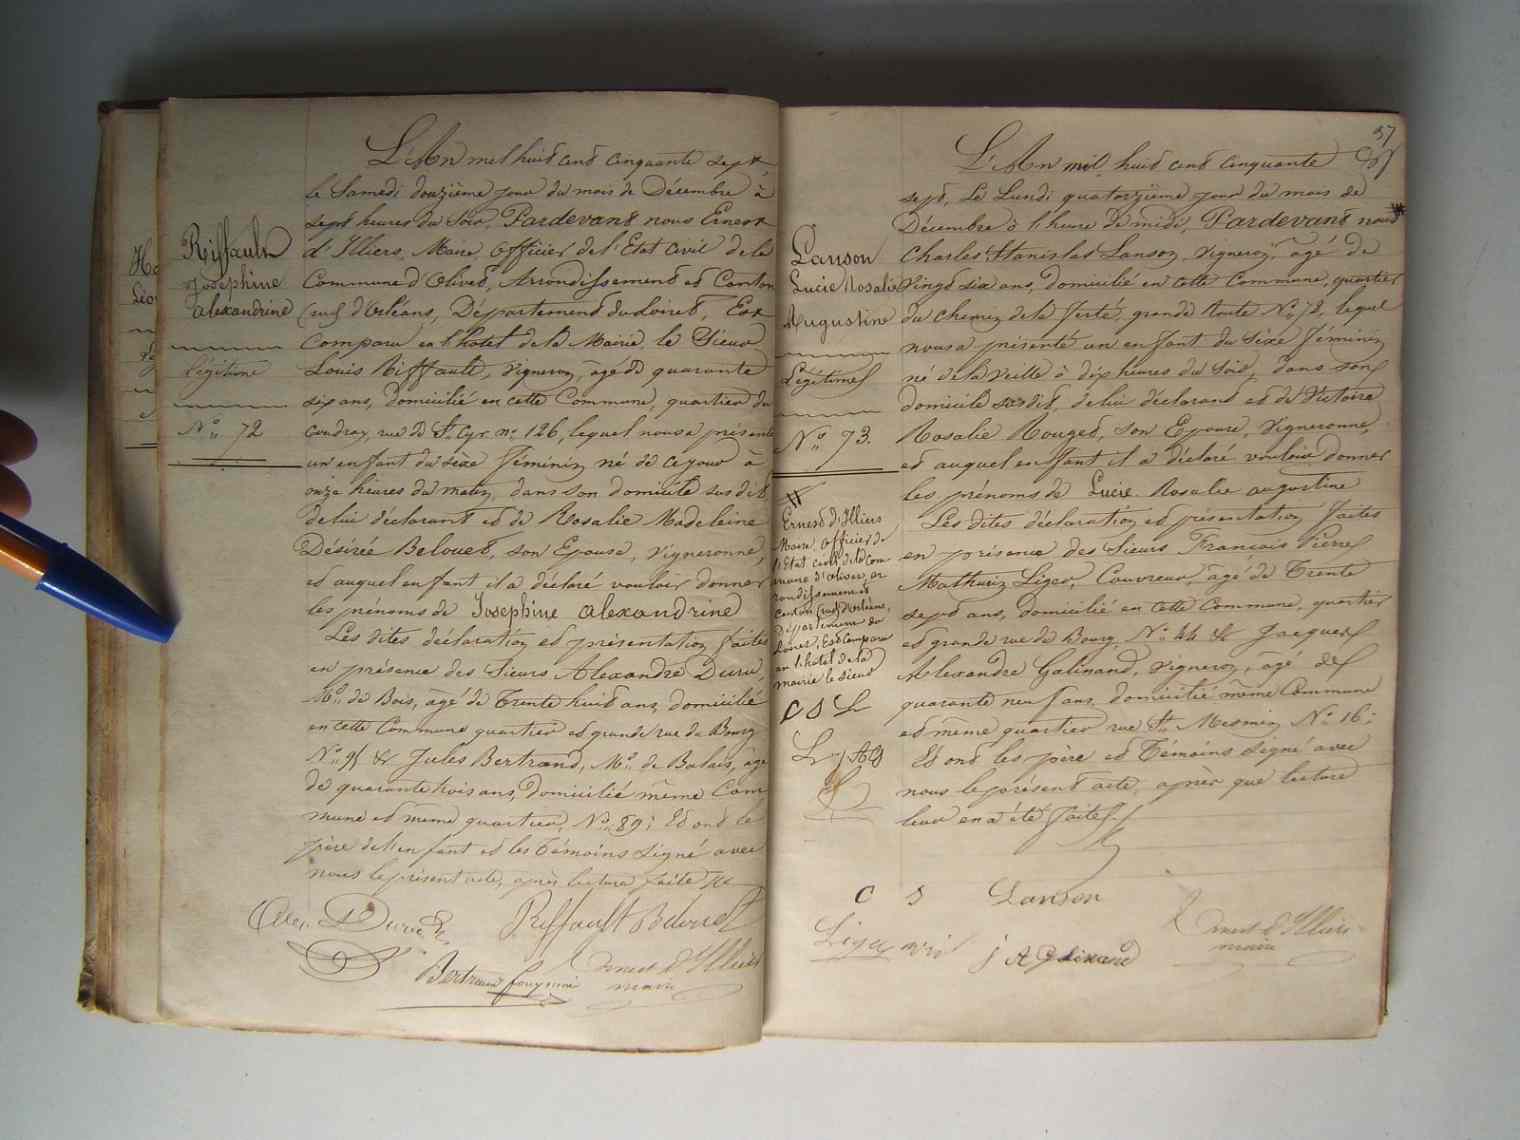 Riffault
Joséphine
alexandrine
légitime
N° 72
L'An mil huit cent cinquante sept
le Samedi douzième jour du mois de Décembre à
sept heures du soir, Pardevant nous Ernest
d'Illiers, Maire, Officier de l'Etat civil de la
Commune d'Olivet, Arrondissement et Canton
(sud) d'Orléans, Département du Loiret, Est
comparu en l'hôtel de la Mairie, le Sieur
Louis Riffault, vigneron, âgé de quarante
six ans, domicilié en cette Commune, quartier du
Coudray, rue de St. Cyr n° 126, lequel nous a présenté
un enfant du sèxe féminin, né de ce jour à
onze heures du matin, dans son domicile sus dit,
de lui déclarant et de Rosalie Madeleine
Désirée Belouet, son Epouse, vigneronne,
et auquel enfant il a déclaré vouloir donner
les prénoms de Joséphine alexandrine
Les dites déclaration et présentation faites
en présence des Sieurs Alexandre Duru,
Md. de Bois, âgé de Trente huit ans, domicilié
en cette Commune quartier et grande rue du Bourg
N° 95 & Jules Bertrand, Md. de Balais, âgé
de quarante trois ans, domicilié même Com
mune et même quartier, N° 89; Et ont le
père de l'enfant et les témoins signé avec
nous le présent acte, après lecture faite
Riffault Belouet
Bertrand
Ernest d'Illiers
maire
57
Lanson
Lucie Rosalie
Augustine
Légitime
N° 73.
Ernest d'Illiers
Maire, Officier de
l'Etat civil de la Com
mune d'Olivet, ar
rondissement et
canton (sud) d'Orléans,
Département du
Loiret, Est comparu
en l'hôtel de la
mairie le sieur
C S L
L
L'An mil huit cent cinquante
sept, Le Lundi quatorzième jour du mois de
Décembre à 1 heure de midi, Pardevant nous
Charles Stanislas Lanson, vigneron, âgé de
Vingt six ans, domicilié en cette Commune, quartier
du chemin de la ferté, grande Route N° 72, lequel
nous a présenté un enfant du sèxe féminin,
né de la veille à dix heures du soir, dans son
domicile sus dit, de lui déclarant et de Victoire
Rosalie Rouget, son Epouse, vigneronne,
et auquel enfant il a déclaré vouloir donner
les prénoms de Lucie Rosalie augustine
Les dites déclaration et présentation faites
en présence des Sieurs François Pierre
Mathurin Liger, Couvreur, âgé de Trente
sept ans, domicilié en cette Commune, quartier
et grande rue du Bourg, N° 44 & Jacques
Alexandre Galinand, vigneron, âgé de
quarante neuf ans, domicilié même Commune
et même quartier rue St. Mesmin N° 16;
Et ont les père et témoins signé avec
nous le présent acte, après que lecture
leur en a été faite.
C S Lanson
Liger
j A Galinand
Ernest d'Illiers
maire